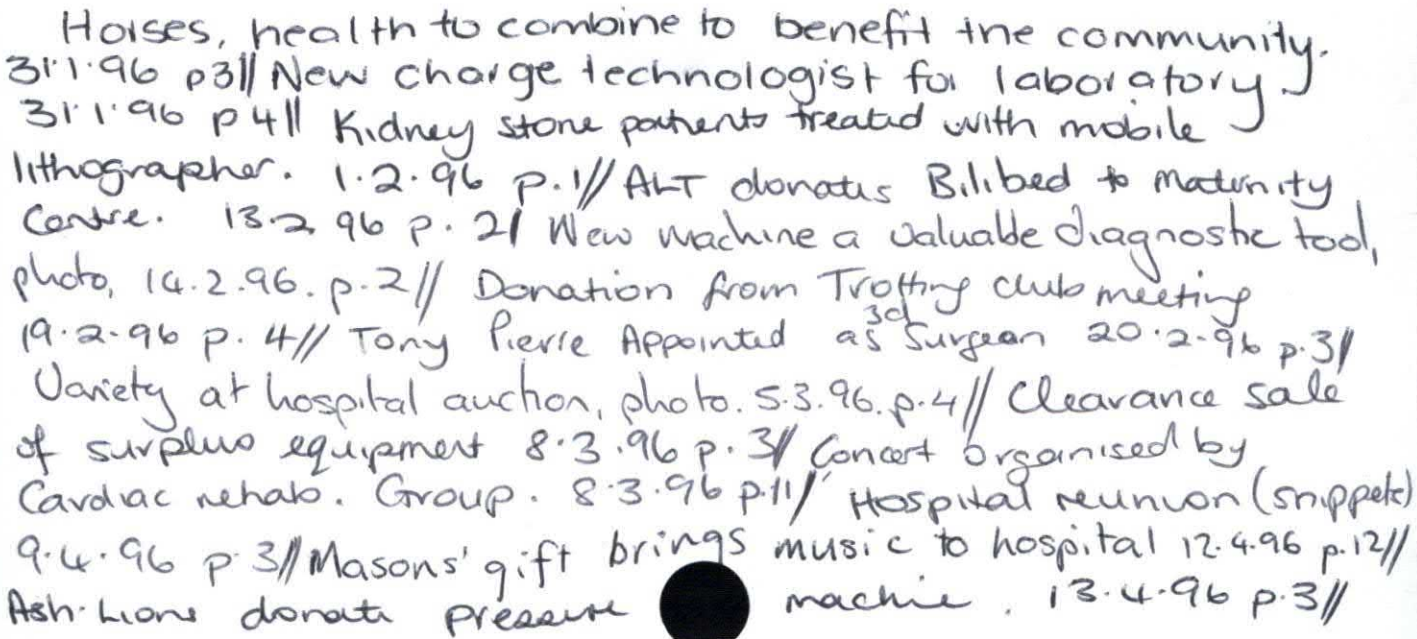 Horses, health to combine to benefit the community.
31.1.96 p3// New charge technologist for laboratory
31.1.96 p4// Kidney stone patients treated with mobile
lithographer. 1.2.96 p.1// ALT donates Bilibed to Maternity
Centre. 13.2 96 p. 2/ New machine a valuable diagnostic tool,
photo, 14.2.96. p.2// Donation from Trotting club meeting
19.2.96 p. 4// Tony Pierre Appointed as 3rd Surgeon 20.2.96 p.3//
Variety at hospital auction, photo. 5.3.96. p.4// Clearance sale
of surplus equipment 8.3.96 p. 3// Concert organised by
Cardiac rehab. Group. 8.3.96 p.11// Hospital reunion (snippets)
9.4.96 p.3// Masons' gift brings music to hospital 12.4.96 p.12//
Ash. Lions donate pressure machine. 13.4.96 p.3//